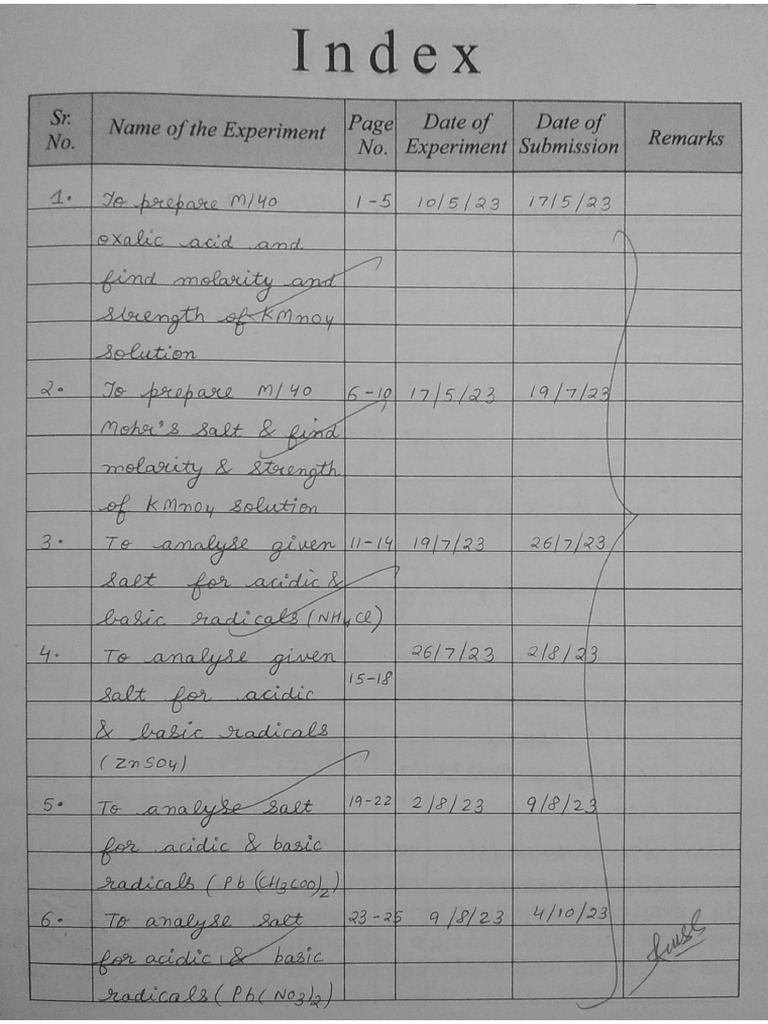 Index
Sr. No. Name of the Experiment Page No. Date of Experiment Date of Submission Remarks
1. To prepare M/40 1-5 10/5/23 17/5/23
oxalic acid and
find molarity and
strength of KMnO4
solution
2. To prepare M/40 6-10 17/5/23 19/7/23
Mohr's salt & find
molarity & strength
of KMnO4 solution
3. To analyse given 11-14 19/7/23 26/7/23
salt for acidic &
basic radicals (NH4Cl)
4. To analyse given 26/7/23 2/8/23
salt for acidic 15-18
& basic radicals
(ZnSO4)
5. To analyse salt 19-22 2/8/23 9/8/23
for acidic & basic
radicals (Pb(CH3COO)2)
6. To analyse salt 23-25 9/8/23 4/10/23
for acidic & basic
radicals (Pb(NO3)2)